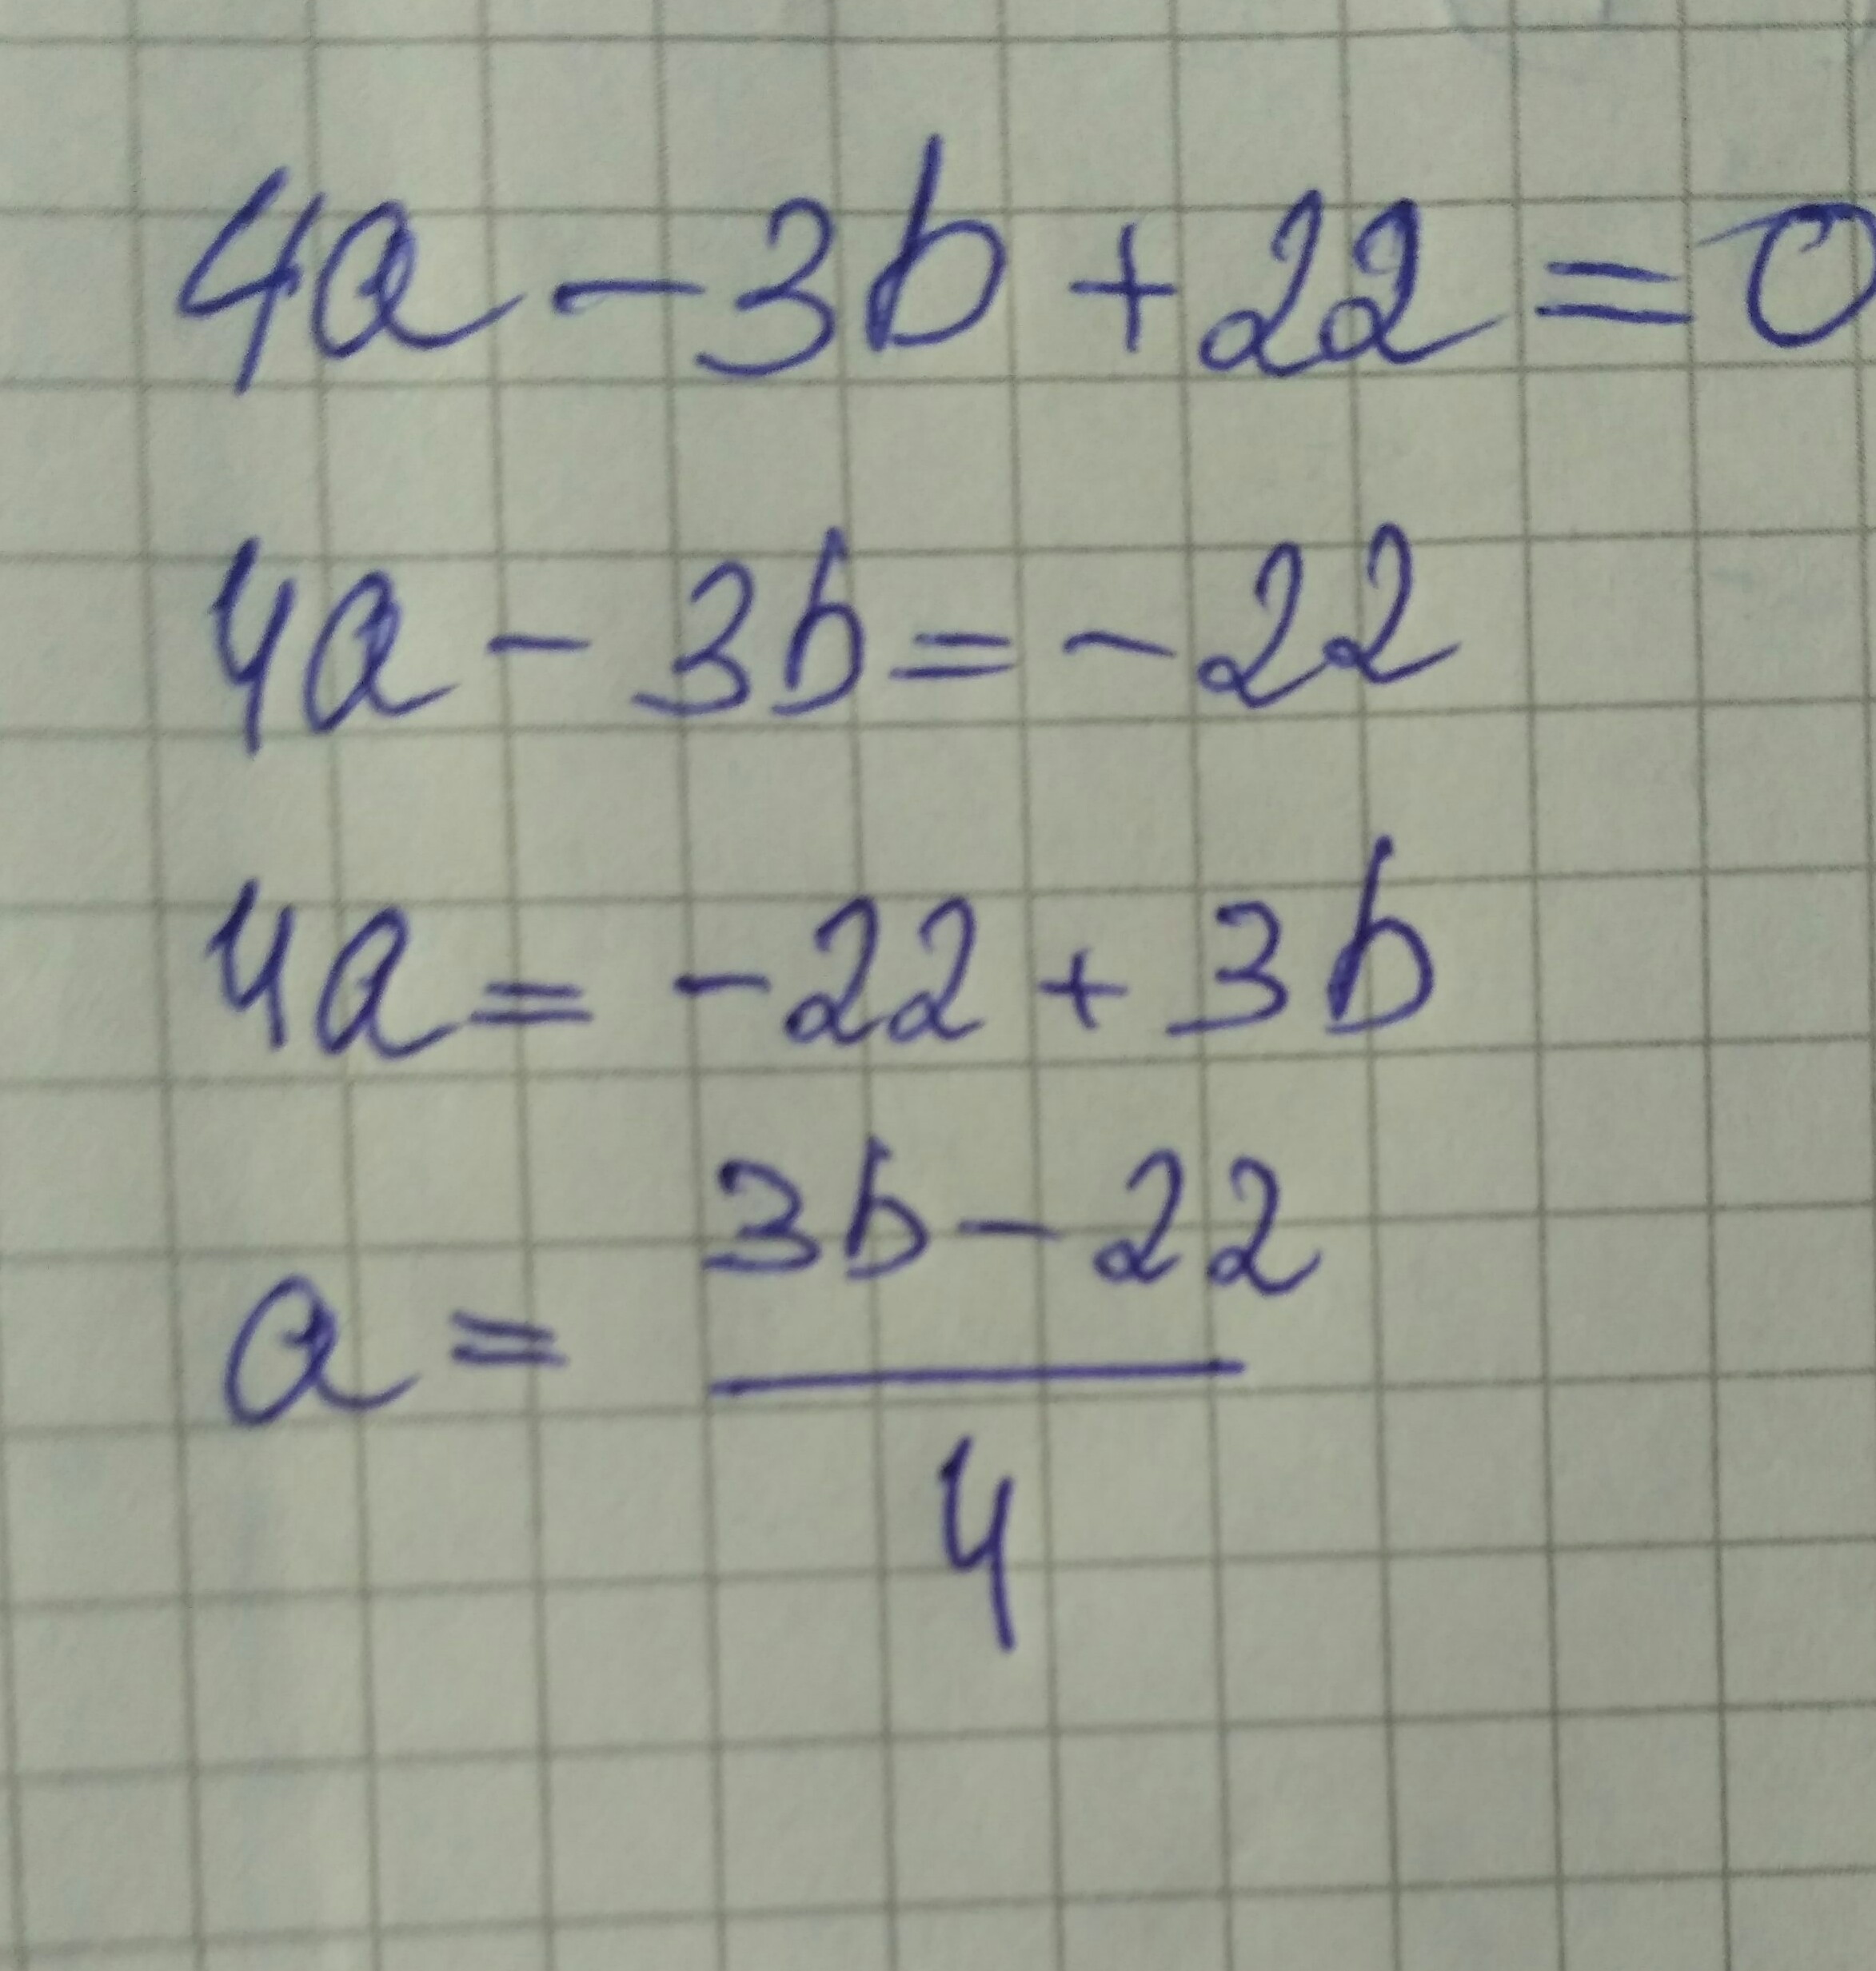 4a - 3b + 22 = 0
4a - 3b = - 22
4a = - 22 + 3b
a = \frac{3b - 22}{4}